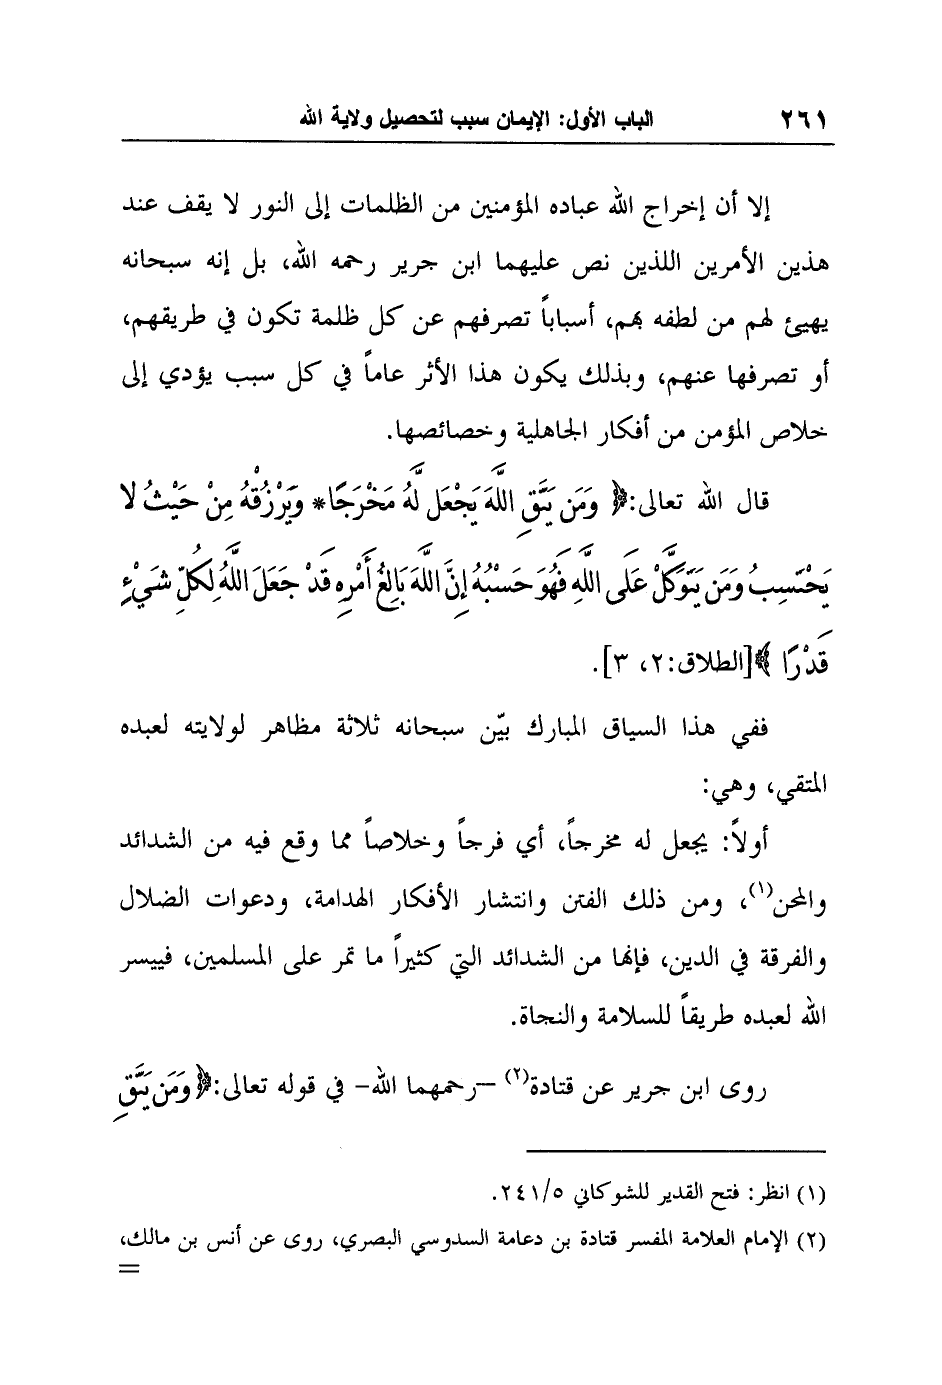 ٢٦١ الباب الأول: الإيمان سبب لتحصيل ولاية الله
إلا أن إخراج الله عباده المؤمنين من الظلمات إلى النور لا يقف عند
هذين الأمرين اللذين نص عليهما ابن جرير رحمه الله، بل إنه سبحانه
يهيئ لهم من لطفه بهم، أسباباً تصرفهم عن كل ظلمة تكون في طريقهم،
أو تصرفها عنهم، وبذلك يكون هذا الأثر عاماً في كل سبب يؤدي إلى
خلاص المؤمن من أفكار الجاهلية وخصائصها.
قال الله تعالى:﴿ وَمَن يَتَّقِ اللَّهَ يَجْعَل لَّهُ مَخْرَجًا* وَيَرْزُقْهُ مِنْ حَيْثُ لَا
يَحْتَسِبُ وَمَن يَتَوَكَّلْ عَلَى اللَّهِ فَهُوَ حَسْبُهُ إِنَّ اللَّهَ بَالِغُ أَمْرِهِ قَدْ جَعَلَ اللَّهُ لِكُلِّ شَيْءٍ
قَدْرًا ﴾[الطلاق:٢، ٣].
ففي هذا السياق المبارك بيّن سبحانه ثلاثة مظاهر لولايته لعبده
المتقي، وهي:
أولاً: يجعل له مخرجاً، أي فرجاً وخلاصاً مما وقع فيه من الشدائد
والمحن(١)، ومن ذلك الفتن وانتشار الأفكار الهدامة، ودعوات الضلال
والفرقة في الدين، فإنها من الشدائد التي كثيراً ما تمر على المسلمين، فييسر
الله لعبده طريقاً للسلامة والنجاة.
روى ابن جرير عن قتادة(٢) –رحمهما الله– في قوله تعالى:﴿ وَمَن يَتَّقِ
(١) انظر: فتح القدير للشوكاني ٢٤١/٥.
(٢) الإمام العلامة المفسر قتادة بن دعامة السدوسي البصري، روى عن أنس بن مالك،
=